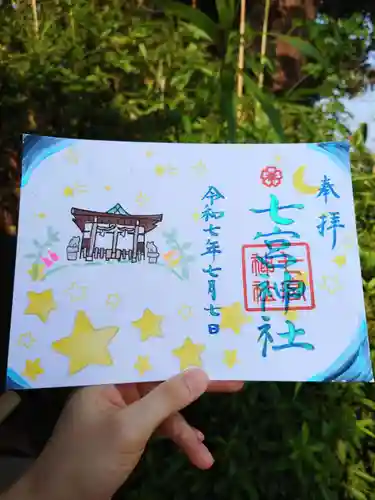 奉拝
七宮神社
令和七年七月七日